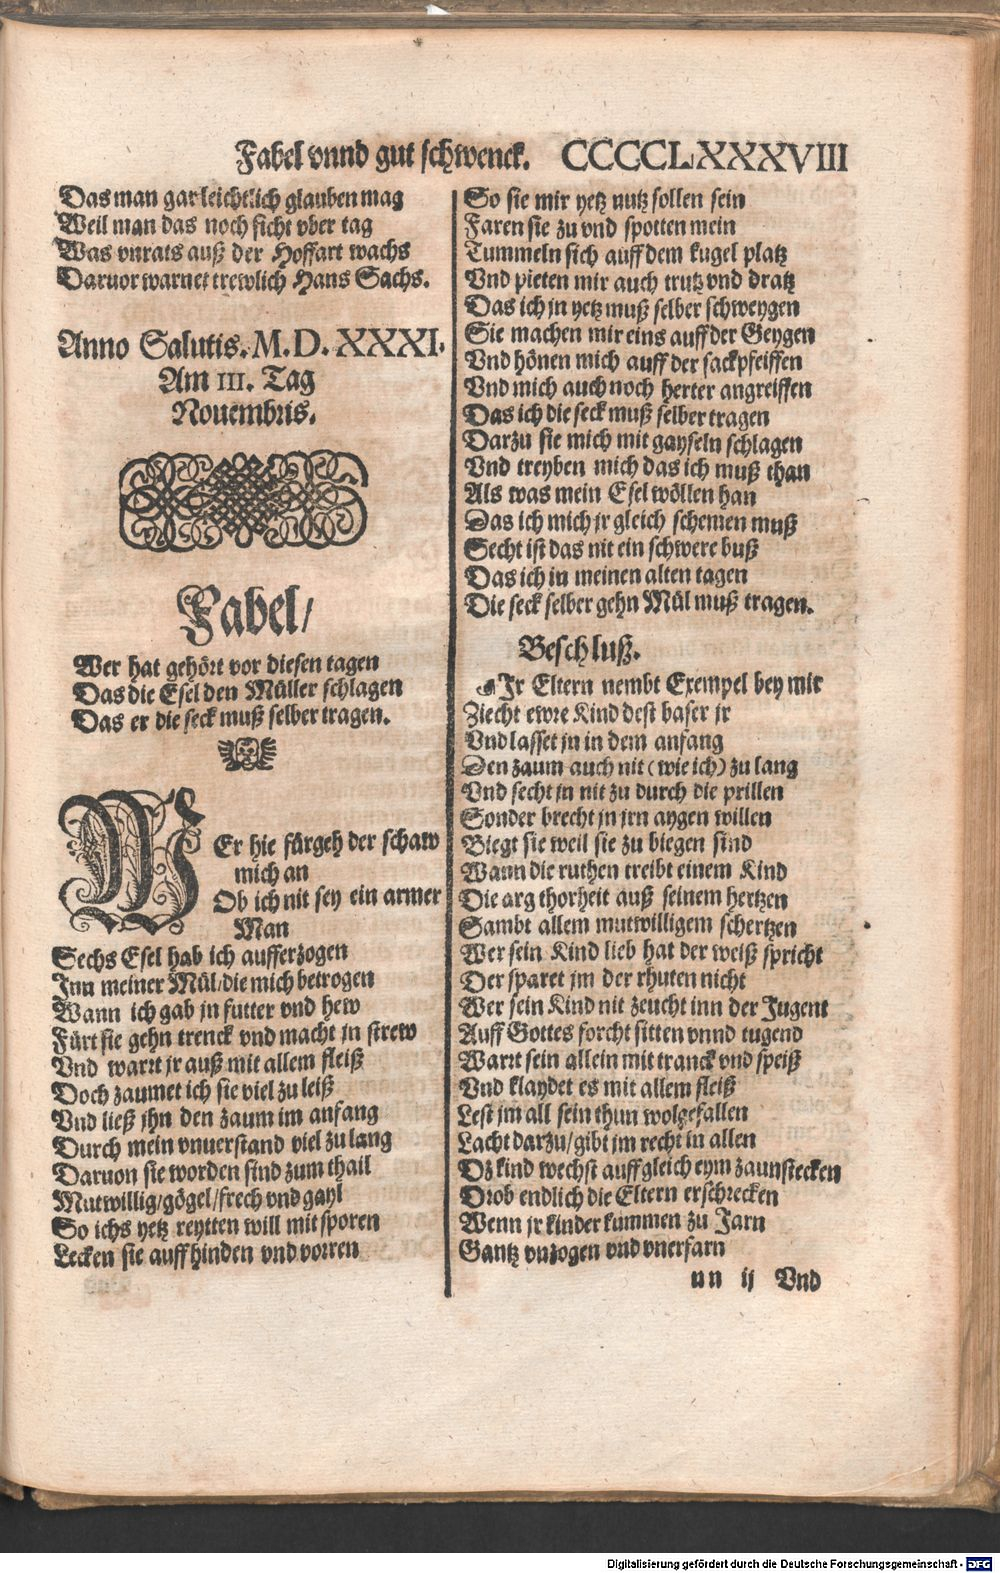 Fabel vnnd gut schwenck. CCCCCLXXXVIII
Das man gar leichtlich glauben mag
Weil man das noch sicht vber tag
Was vnrats auß der Hoffart wachs
Daruor warnet trewlich Hans Sachs.
Anno Salutis. M. D. XXXI.
Am III. Tag
Nouembris.
Fabel/
Wer hat gehört vor diesen tagen
Das die Esel den Müller schlagen
Das er die seck muß selber tragen.
WEr hie fürgeh der schaw
mich an
Ob ich nit sey ein armer
Man
Sechs Esel hab ich aufferzogen
Inn meiner Mül/die mich betrogen
Wann ich gab jn futter vnd hew
Fürt sie gehn trenck vnd macht jn strew
Vnd wartt jr auß mit allem fleiß
Doch zaumet ich sie viel zu leiß
Vnd ließ ihn den zaum im anfang
Durch mein vnuerstand viel zu lang
Daruon sie worden sind zum thail
Mutwillig/gögel/frech vnd gayl
So ichs yetz reytten will mit sporen
Lecken sie auff hinden vnd vorren
So sie mir yetz nutz sollen sein
Faren sie zu vnd spotten mein
Tummeln sich auff dem kugel platz
Vnd pieten mir auch trutz vnd dratz
Das ich jn yetz muß selber schweygen
Sie machen mir eins auff der Geygen
Vnd hönen mich auff der sackpfeiffen
Vnd mich auch noch herter angreiffen
Das ich die seck muß selber tragen
Darzu sie mich mit gayseln schlagen
Vnd treyben mich das ich muß than
Als was mein Esel wöllen han
Das ich mich jr gleich schemen muß
Secht ist das nit ein schwere buß
Das ich in meinen alten tagen
Die seck selber gehn Mül muß tragen.
Beschluß.
Jr Eltern nembt Exempel bey mir
Ziecht ewre Kind dest baser jr
Vnd lasset jn in dem anfang
Den zaum auch nit (wie ich) zu lang
Vnd secht jn nit zu durch die prillen
Sonder brecht jn jrn aygen willen
Biegt sie weil sie zu biegen sind
Wann die ruthen treibt einem Kind
Die arg thorheit auß seinem hertzen
Sambt allem mutwilligem schertzen
Wer sein Kind lieb hat der weiß spricht
Der sparet jm der rhuten nicht
Wer sein Kind nit zeucht inn der Jugent
Auff Gottes forcht sitten vnnd tugend
Wartt sein allein mit tranck vnd speiß
Vnd klaydet es mit allem fleiß
Lest jm all sein thun wolgefallen
Lacht darzu/gibt jm recht in allen
Dz kind wechst auff gleich eym zaunstecken
Drob endlich die Eltern erschrecken
Wenn jr kinder kummen zu Jarn
Gantz vnzogen vnd vnerfarn
nn ij Vnd
Digitalisierung gefördert durch die Deutsche Forschungsgemeinschaft - DFG